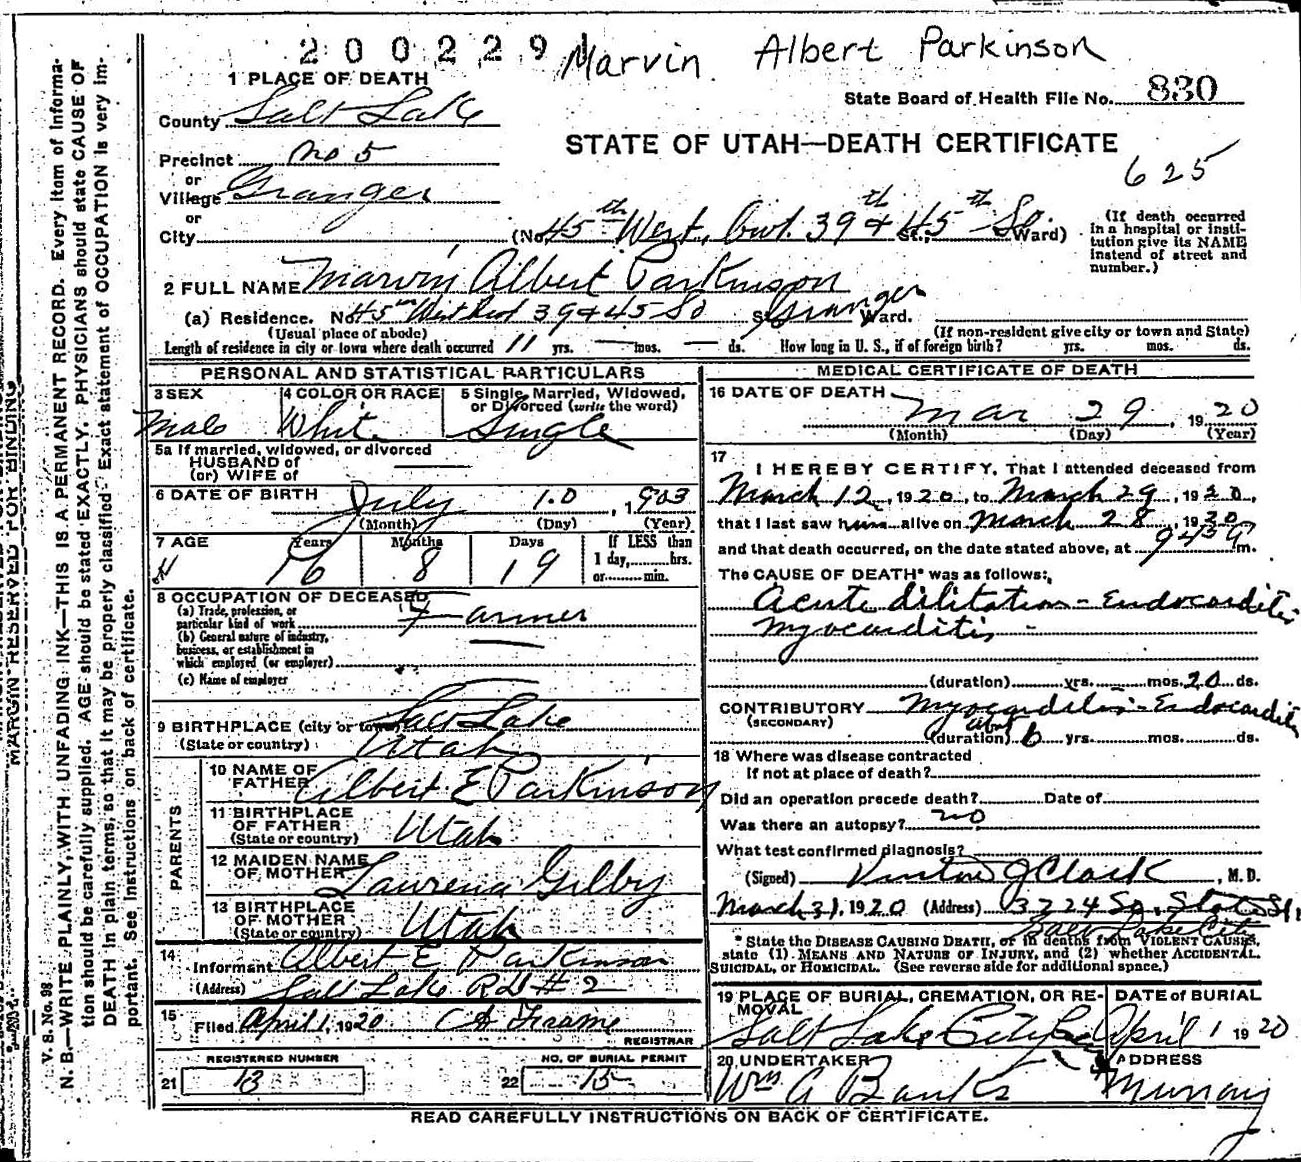 2002291 Marvin Albert Parkinson
State Board of Health File No. 830
STATE OF UTAH—DEATH CERTIFICATE
625
1 PLACE OF DEATH
County Salt Lake
Precinct No 5
or
Village Granger
or
City (No. 45th West, bet. 39th & 45th So. St.; Ward)
(If death occurred in a hospital or insti-
tution give its NAME
instead of street and
number.)
2 FULL NAME Marvin Albert Parkinson
(a) Residence. No. 45th West bet 39 & 45 So St., Granger Ward.
(Usual place of abode) (If non-resident give city or town and State)
Length of residence in city or town where death occurred 11 yrs. — mos. — ds. How long in U. S., if of foreign birth? yrs. mos. ds.
PERSONAL AND STATISTICAL PARTICULARS
3 SEX 4 COLOR OR RACE 5 Single, Married, Widowed, or Divorced (write the word)
Male White Single
5a If married, widowed, or divorced
HUSBAND of
(or) WIFE of
6 DATE OF BIRTH July 10, 1903
(Month) (Day) (Year)
7 AGE Years Months Days If LESS than
16 8 19 1 day, hrs.
or min.
8 OCCUPATION OF DECEASED
(a) Trade, profession, or
particular kind of work Farmer
(b) General nature of industry,
business, or establishment in
which employed (or employer)
(c) Name of employer
9 BIRTHPLACE (city or town) Salt Lake
(State or country) Utah
PARENTS
10 NAME OF FATHER Albert E Parkinson
11 BIRTHPLACE OF FATHER (State or country) Utah
12 MAIDEN NAME OF MOTHER Laurena Gilby
13 BIRTHPLACE OF MOTHER (State or country) Utah
14 Informant Albert E Parkinson
(Address) Salt Lake R D # 2
15 Filed April 1, 1920 C A Frame
REGISTRAR
REGISTERED NUMBER NO. OF BURIAL PERMIT
21 13 22 15
MEDICAL CERTIFICATE OF DEATH
16 DATE OF DEATH
Mar 29, 1920
(Month) (Day) (Year)
17 I HEREBY CERTIFY, That I attended deceased from
March 12, 1920, to March 29, 1920,
that I last saw him alive on March 28, 1920
and that death occurred, on the date stated above, at m.
The CAUSE OF DEATH* was as follows:
Acute dilitation - Endocarditis
Myocarditis -
(duration) yrs. mos. 20 ds.
CONTRIBUTORY Myocarditis - Endocarditis
(SECONDARY)
(duration) about 6 yrs. mos. ds.
18 Where was disease contracted
If not at place of death?
Did an operation precede death? Date of
Was there an autopsy? no
What test confirmed diagnosis?
(Signed) J Clark, M. D.
March 31, 1920 (Address) 3224 So. State St,
Salt Lake City
* State the DISEASE CAUSING DEATH, or in deaths from VIOLENT CAUSES,
state (1) MEANS AND NATURE OF INJURY, and (2) whether ACCIDENTAL,
SUICIDAL, or HOMICIDAL. (See reverse side for additional space.)
19 PLACE OF BURIAL, CREMATION, OR RE-MOVAL DATE of BURIAL
Salt Lake City Cem April 1 1920
20 UNDERTAKER ADDRESS
Wm A Banks Murray
READ CAREFULLY INSTRUCTIONS ON BACK OF CERTIFICATE.
MARGIN RESERVED FOR BINDING
V. S. No. 98
N. B.—WRITE PLAINLY, WITH UNFADING INK—THIS IS A PERMANENT RECORD. Every item of informa-
tion should be carefully supplied. AGE should be stated EXACTLY. PHYSICIANS should state CAUSE OF
DEATH in plain terms, so that it may be properly classified. Exact statement of OCCUPATION is very im-
portant. See instructions on back of certificate.